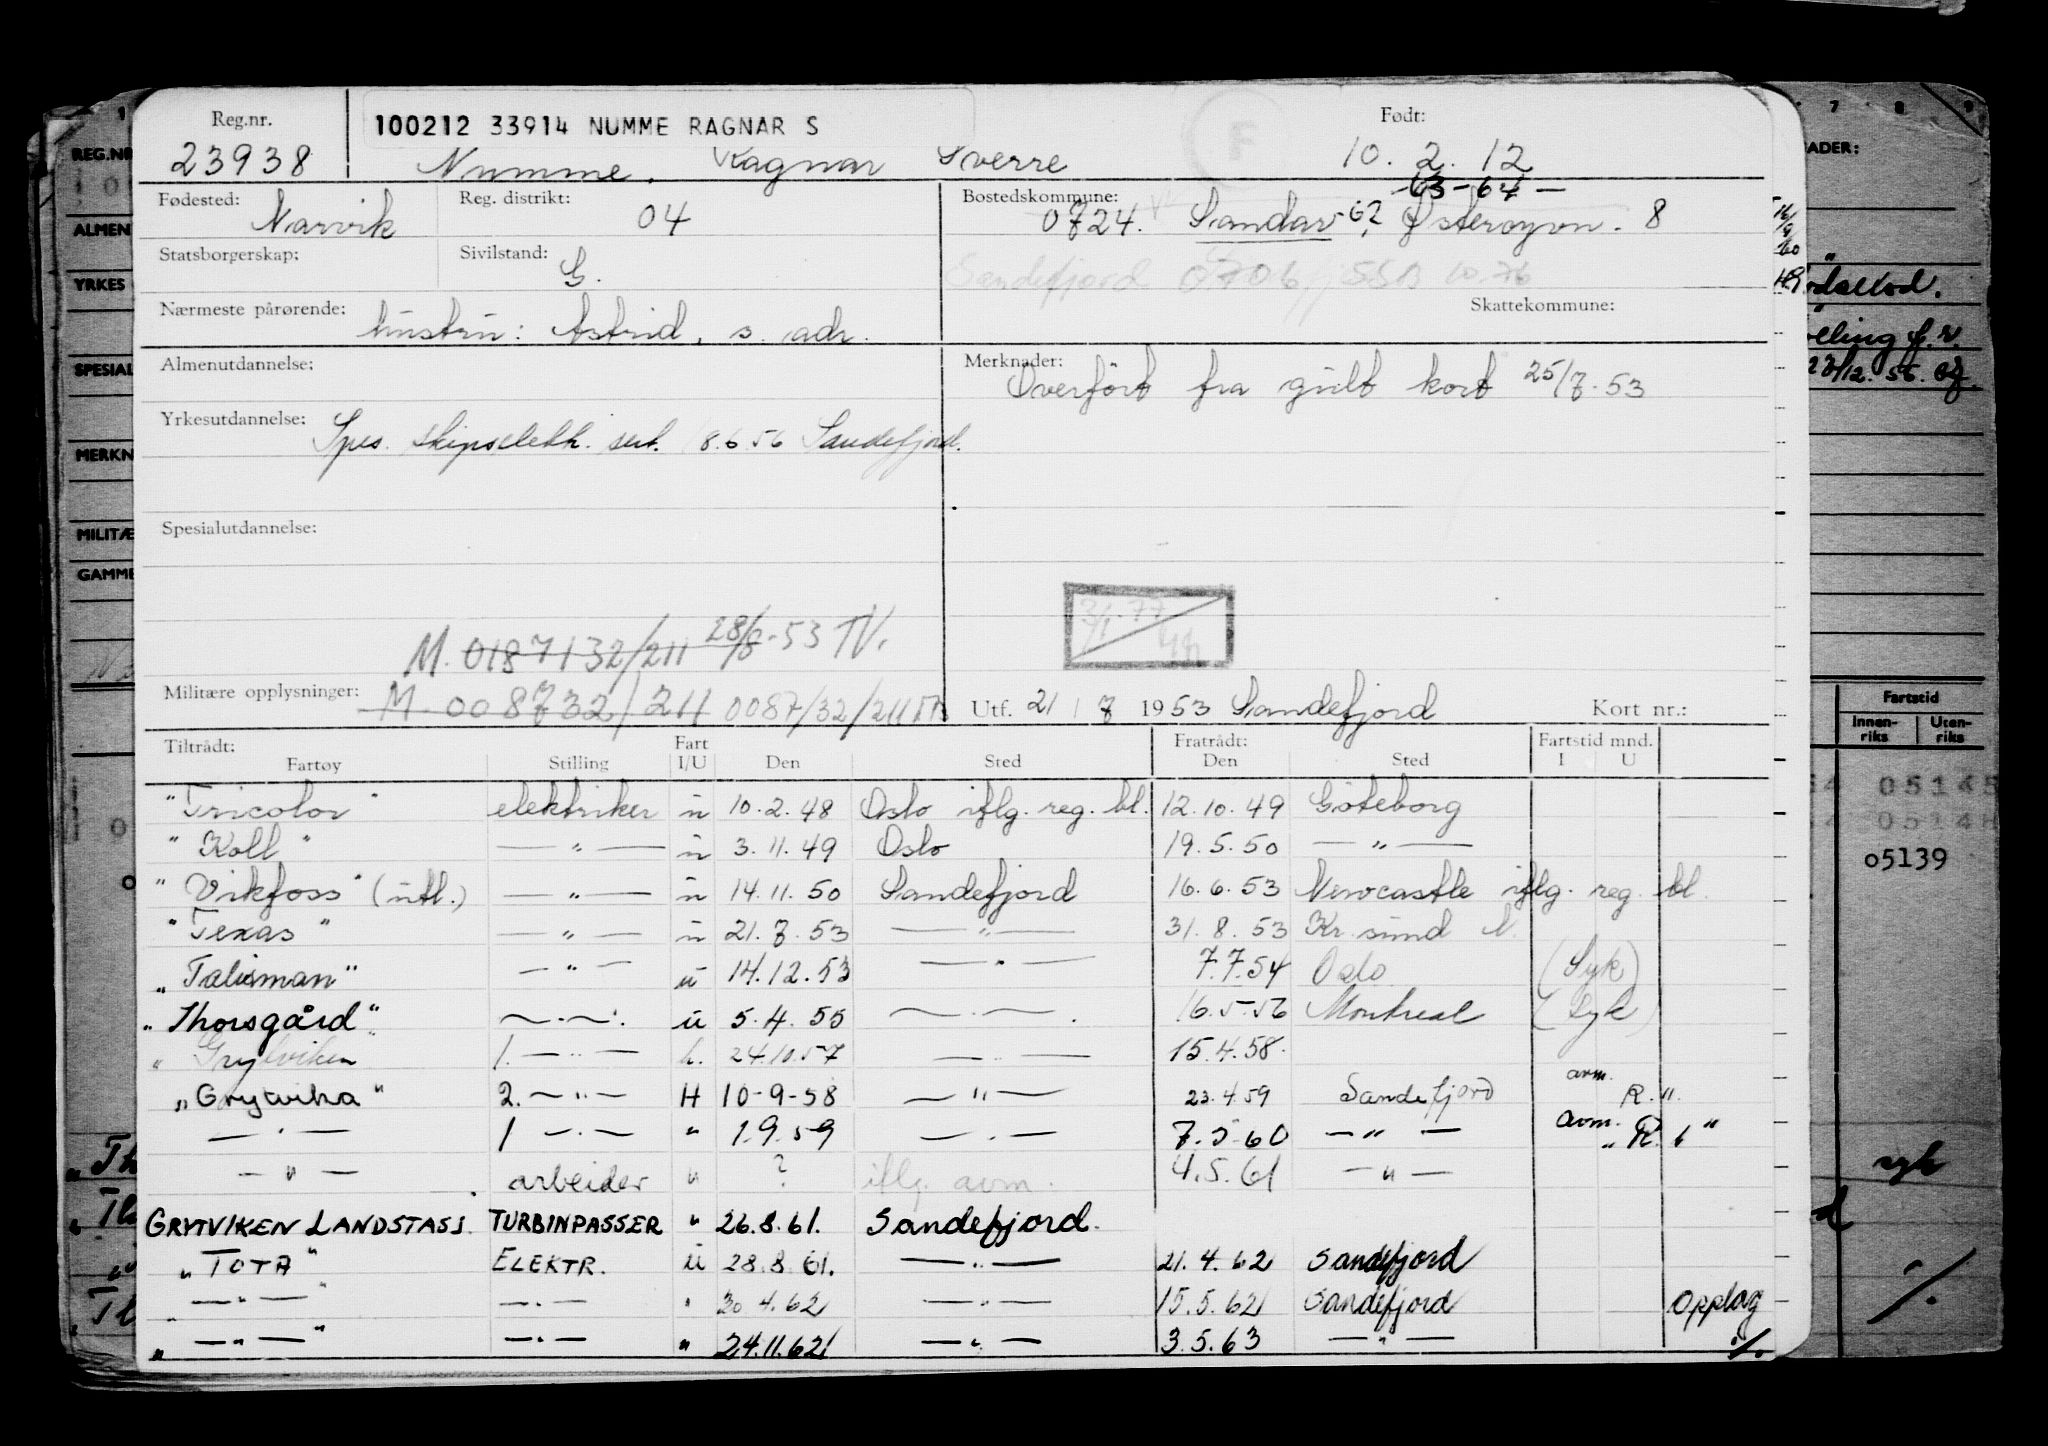 Reg.nr. 100212 33914 NUMME RAGNAR S Født:
23938 Numme, Ragnar Sverre 10. 2. 12
63-64-
Fødested: Narvik Reg. distrikt: 04 Bostedskommune: 0724. Sandar 62, Østerøyvn. 8
Statsborgerskap: Sivilstand: G. Sandefjord 0706 10.76
Nærmeste pårørende: hustru: Astrid, s. adr. Skattekommune:
Almenutdannelse: Merknader: Overført fra gult kort 25/7.53
Yrkesutdannelse: Spes. skipselektr. sert. 18.6.56 Sandefjord.
Spesialutdannelse:
3/1.77
M. 0187132/211 28/8.53 TV.
Militære opplysninger: M 008732/211 0087/32/211 Utf. 21/7 1953 Sandefjord Kort nr.:
Tiltrådt: Fart Fratrådt: Fartstid mnd.
Fartøy Stilling I/U Den Sted Den Sted I U
"Tricolor" elektriker u 10.2.48 Oslo iflg. reg. bl. 12.10.49 Göteborg
"Koll" — " — u 3.11.49 Oslo 19.5.50 — " —
"Vikfoss" (utl.) — " — u 14.11.50 Sandefjord 16.6.53 Newcastle iflg. reg. bl.
"Texas" — " — u 21.7.53 — " — 31.8.53 Kr. sund N.
"Talisman" — " — u 14.12.53 — " — 7.7.54 Oslo (Syk)
"Thorsgård" — " — u 5.4.55 — " — 16.5.56 Montreal (Syk)
" Grytviken 1. — " — h. 24.10.57 — " — 15.4.58.
"Grytvika" 2. — " — H 10-9-58 — " — 23.4.59 Sandefjord avm. R.11.
— " — 1 — " — " 1.9.59 — " — 7.5.60 — " — avm. "R.6"
— " — arbeider " ? iflg. avm. 4.5.61 — " —
GRYTVIKEN LANDSTASJ. TURBINPASSER " 26.8.61. Sandefjord.
"TOTA" ELEKTR. u 28.8.61. — " — 21.4.62 Sandefjord
" — " — " — " — " 30.4.62 — " — 15.5.62 Sandefjord Opplag
" — " — " — " — " 24.11.62 — " — 3.5.63 — " — ./.
REG.NR
ALMEN
YRKES
SPESIAL
MERKN
MILITÆ
GAMME
7 8 9
ADER:
27/12.56
Fartstid
Innen-riks Uten-riks
05145
o5139
syk
./.